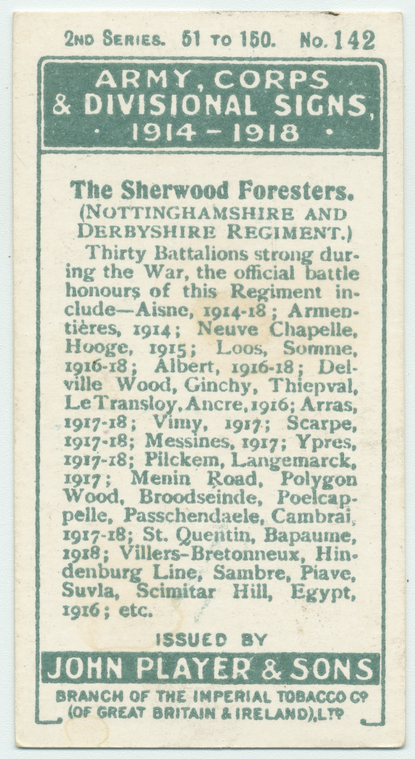 2ND SERIES. 51 TO 150. No. 142
ARMY, CORPS
& DIVISIONAL SIGNS,
· 1914-1918 ·
The Sherwood Foresters.
(NOTTINGHAMSHIRE AND
DERBYSHIRE REGIMENT.)
Thirty Battalions strong dur-
ing the War, the official battle
honours of this Regiment in-
clude—Aisne, 1914-18; Armen-
tières, 1914; Neuve Chapelle,
Hooge, 1915; Loos, Somme,
1916-18; Albert, 1916-18; Del-
ville Wood, Ginchy, Thiepval,
Le Transloy, Ancre, 1916; Arras,
1917-18; Vimy, 1917; Scarpe,
1917-18; Messines, 1917; Ypres,
1917-18; Pilckem, Langemarck,
1917; Menin Road, Polygon
Wood, Broodseinde, Poelcap-
pelle, Passchendaele, Cambrai,
1917-18; St. Quentin, Bapaume,
1918; Villers-Bretonneux, Hin-
denburg Line, Sambre, Piave,
Suvla, Scimitar Hill, Egypt,
1916; etc.
ISSUED BY
JOHN PLAYER & SONS
BRANCH OF THE IMPERIAL TOBACCO CO.
(OF GREAT BRITAIN & IRELAND), LTD.